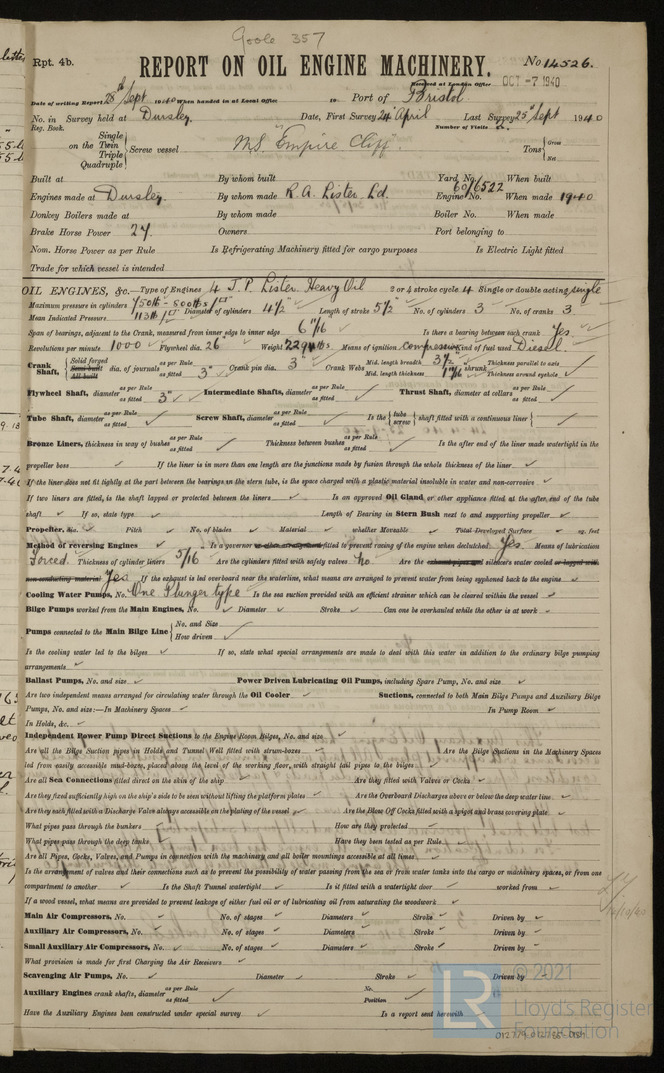 Goole 357
Rpt. 4b.
REPORT ON OIL ENGINE MACHINERY.
No 14526.
Received at London Office
OCT -7 1940
Date of writing Report 28th Sept 1940 When handed in at Local Office 19 Port of Bristol
No. in Survey held at Dursley. Date, First Survey 24 April Last Survey 25th Sept 1940
Reg. Book.
Number of Visits
Single
on the Twin
Triple
Quadruple
Screw vessel
MS "Empire Cliff"
Tons Gross
Net
Built at By whom built Yard No. When built
Engines made at Dursley. By whom made R.A. Lister Ld. Engine No. 60/6522 When made 1940
Donkey Boilers made at By whom made Boiler No. When made
Brake Horse Power 27. Owners Port belonging to
Nom. Horse Power as per Rule Is Refrigerating Machinery fitted for cargo purposes Is Electric Light fitted
Trade for which vessel is intended
OIL ENGINES, &c. Type of Engines 4 J.P. Lister Heavy Oil 2 or 4 stroke cycle 4 Single or double acting single
Maximum pressure in cylinders 750 lb - 800 lbs/□" Diameter of cylinders 4½" Length of stroke 5½" No. of cylinders 3 No. of cranks 3
Mean Indicated Pressure 113 lb/□"
Span of bearings, adjacent to the Crank, measured from inner edge to inner edge 6 11/16 Is there a bearing between each crank Yes.
Revolutions per minute 1000 Flywheel dia. 26" Weight 229 lbs Means of ignition compression Kind of fuel used Diesel.
Crank Shaft, Solid forged Semi built All built dia. of journals as per Rule as fitted 3" Crank pin dia. 3" Crank Webs Mid. length breadth 3½" Mid. length thickness shrunk Thickness parallel to axis Thickness around eyehole
Flywheel Shaft, diameter as per Rule as fitted 3" Intermediate Shafts, diameter as per Rule as fitted Thrust Shaft, diameter at collars as per Rule as fitted
Tube Shaft, diameter as per Rule as fitted Screw Shaft, diameter as per Rule as fitted Is the tube screw shaft fitted with a continuous liner
Bronze Liners, thickness in way of bushes as per Rule as fitted Thickness between bushes as per Rule as fitted Is the after end of the liner made watertight in the
propeller boss If the liner is in more than one length are the junctions made by fusion through the whole thickness of the liner
If the liner does not fit tightly at the part between the bearings in the stern tube, is the space charged with a plastic material insoluble in water and non-corrosive
If two liners are fitted, is the shaft lapped or protected between the liners Is an approved Oil Gland or other appliance fitted at the after end of the tube
shaft If so, state type Length of Bearing in Stern Bush next to and supporting propeller
Propeller, dia. Pitch No. of blades Material whether Moveable Total Developed Surface sq. feet
Method of reversing Engines Is a governor or other arrangement fitted to prevent racing of the engine when declutched Yes Means of lubrication
Forced. Thickness of cylinder liners 5/16" Are the cylinders fitted with safety valves No Are the exhaust pipes and silencers water cooled or lagged with
non-conducting material Yes If the exhaust is led overboard near the waterline, what means are arranged to prevent water being syphoned back to the engine
Cooling Water Pumps, No. One Plunger type Is the sea suction provided with an efficient strainer which can be cleared within the vessel
Bilge Pumps worked from the Main Engines, No. Diameter Stroke Can one be overhauled while the other is at work
Pumps connected to the Main Bilge Line No. and Size
How driven
Is the cooling water led to the bilges If so, state what special arrangements are made to deal with this water in addition to the ordinary bilge pumping
arrangements
Ballast Pumps, No. and size Power Driven Lubricating Oil Pumps, including Spare Pump, No. and size
Are two independent means arranged for circulating water through the Oil Cooler Suctions, connected to both Main Bilge Pumps and Auxiliary Bilge
Pumps, No. and size:—In Machinery Spaces In Pump Room
In Holds, &c.
Independent Power Pump Direct Suctions to the Engine Room Bilges, No. and size
Are all the Bilge Suction pipes in Holds and Tunnel Well fitted with strum-boxes Are the Bilge Suctions in the Machinery Spaces
led from easily accessible mud-boxes, placed above the level of the working floor, with straight tail pipes to the bilges
Are all Sea Connections fitted direct on the skin of the ship Are they fitted with Valves or Cocks
Are they fixed sufficiently high on the ship's side to be seen without lifting the platform plates Are the Overboard Discharges above or below the deep water line
Are they each fitted with a Discharge Valve always accessible on the plating of the vessel Are the Blow Off Cocks fitted with a spigot and brass covering plate
What pipes pass through the bunkers How are they protected
What pipes pass through the deep tanks Have they been tested as per Rule
Are all Pipes, Cocks, Valves, and Pumps in connection with the machinery and all boiler mountings accessible at all times
Is the arrangement of valves and their connections such as to prevent the possibility of water passing from the sea or from water tanks into the cargo or machinery spaces, or from one
compartment to another Is the Shaft Tunnel watertight Is it fitted with a watertight door worked from
If a wood vessel, what means are provided to prevent leakage of either fuel oil or of lubricating oil from saturating the woodwork
Main Air Compressors, No. No. of stages Diameters Stroke Driven by
Auxiliary Air Compressors, No. No. of stages Diameters Stroke Driven by
Small Auxiliary Air Compressors, No. No. of stages Diameters Stroke Driven by
What provision is made for first Charging the Air Receivers
Scavenging Air Pumps, No. Diameter Stroke Driven by
Auxiliary Engines crank shafts, diameter as per Rule as fitted No. Position
Have the Auxiliary Engines been constructed under special survey Is a report sent herewith
© 2021
Lloyd's Register
Foundation